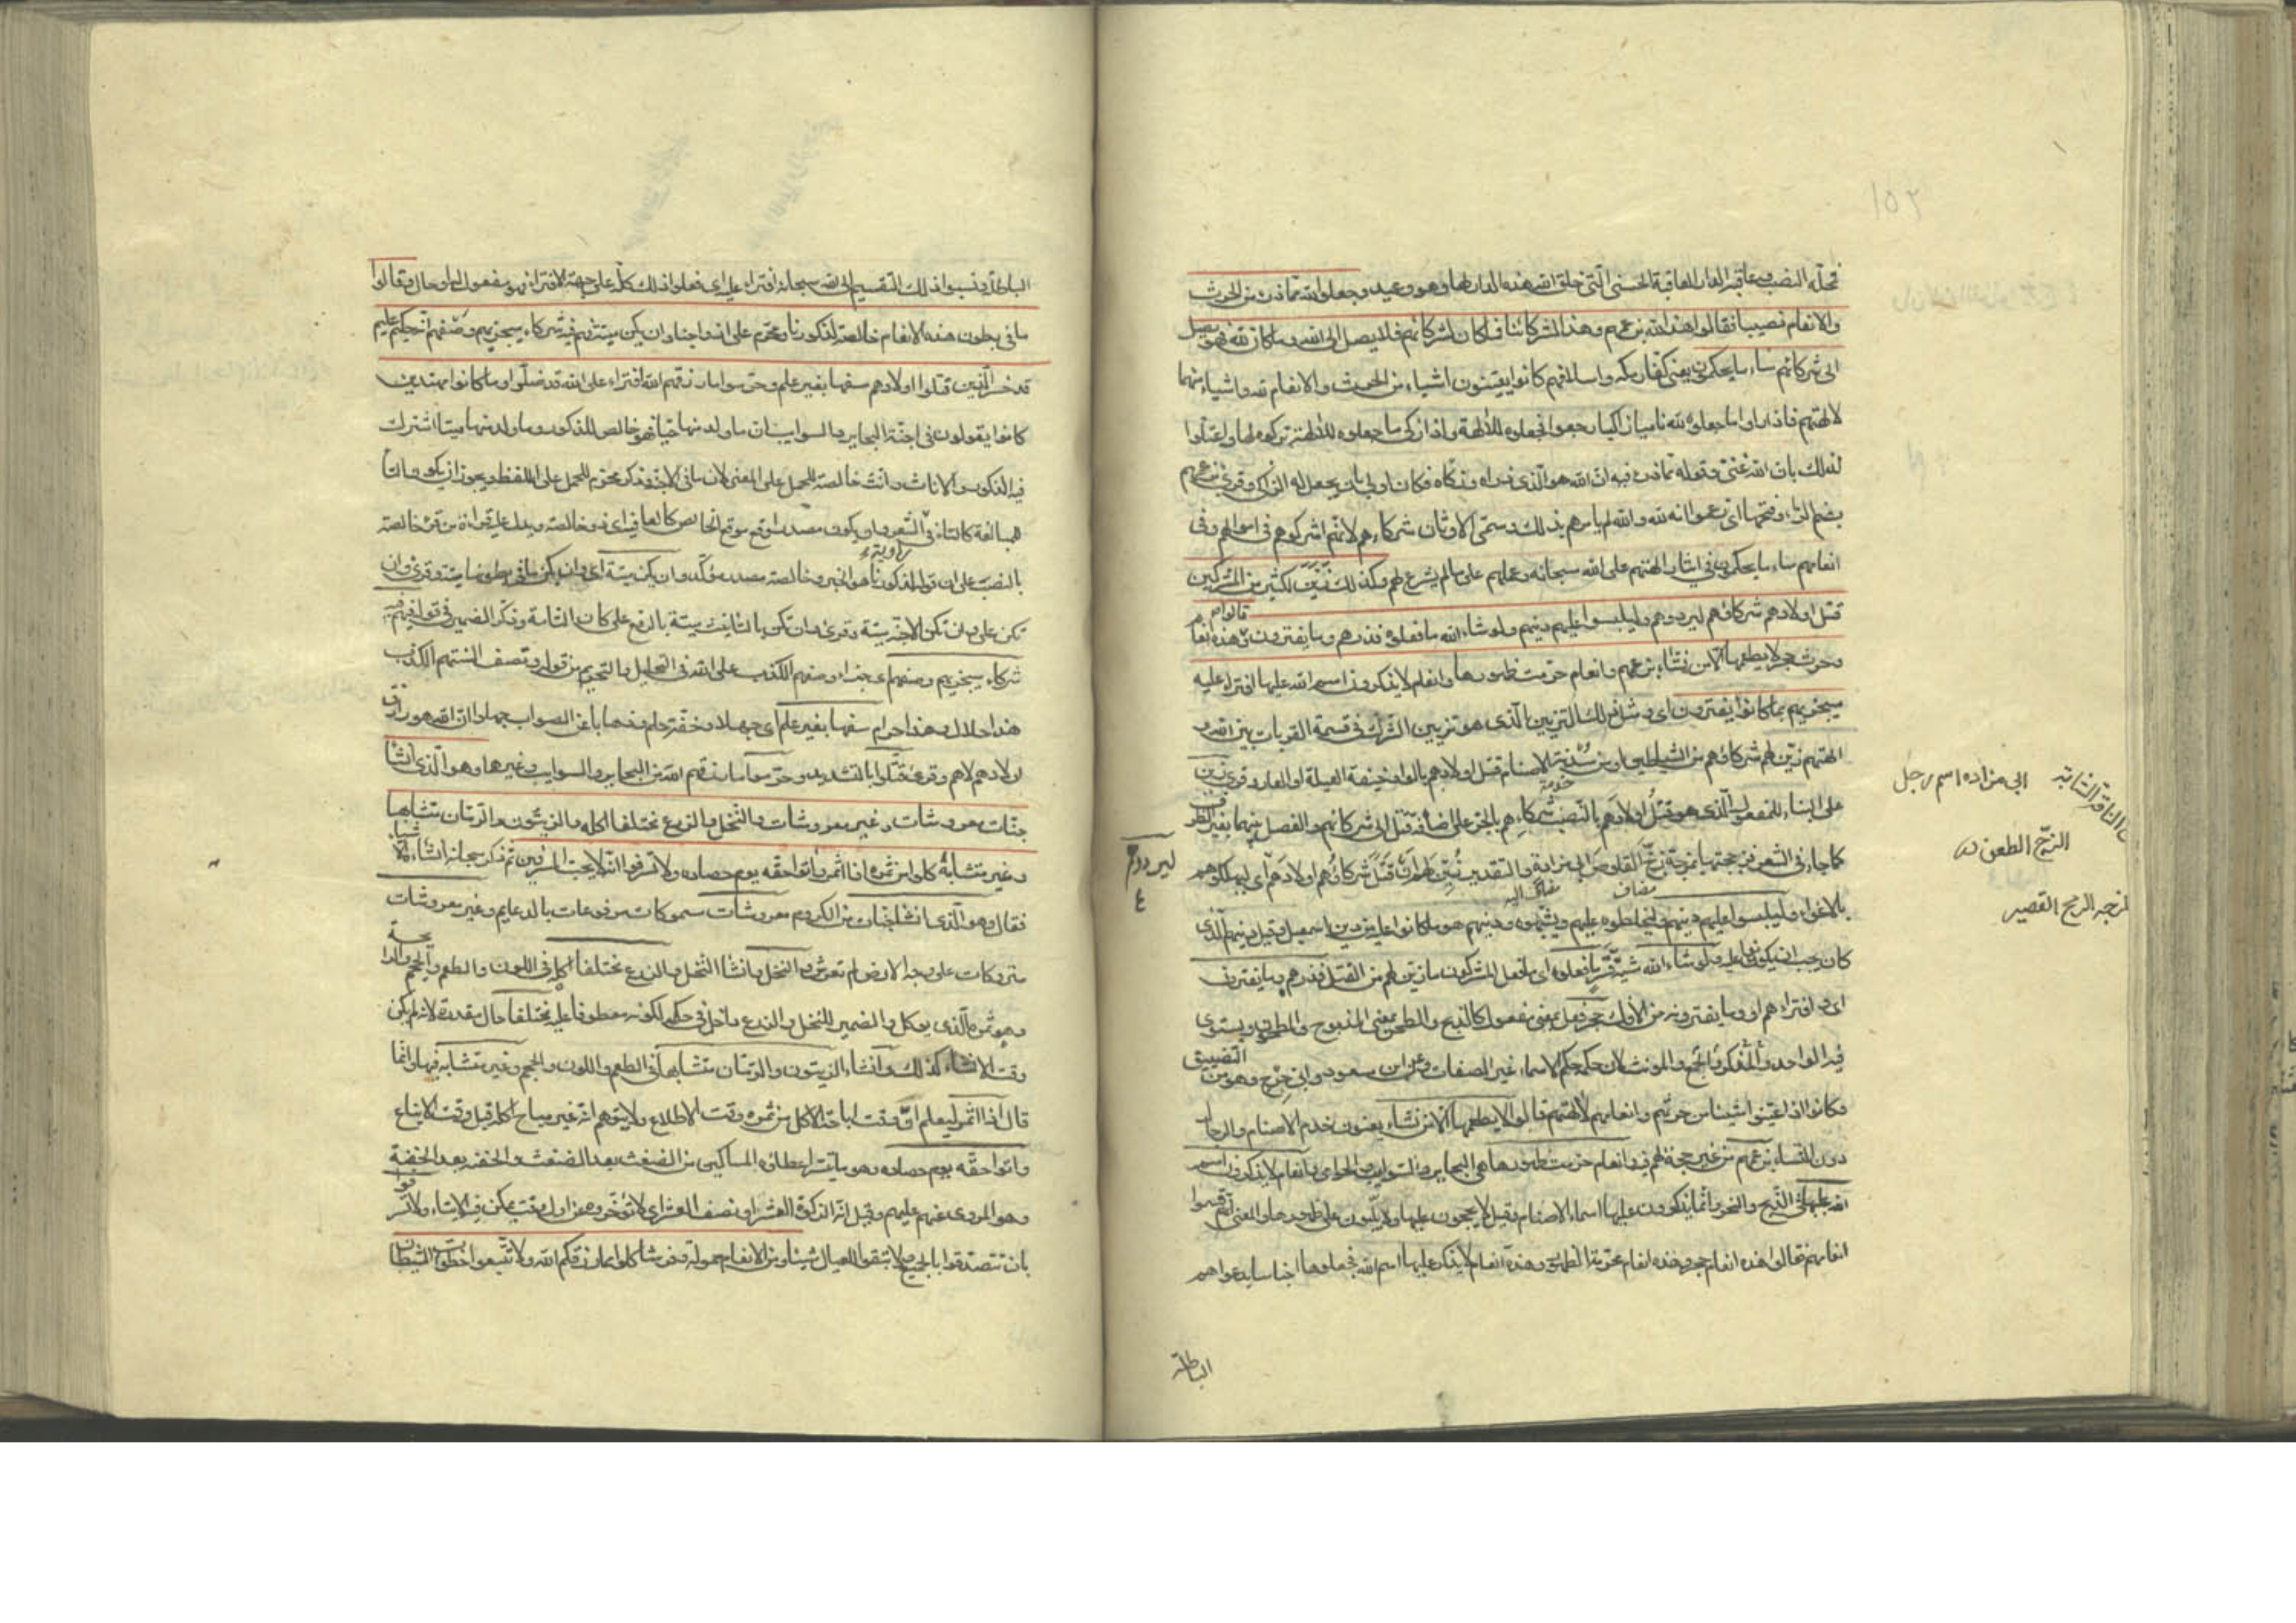 فمحله النصب وعاقبة الدار العاقبة الحسنى التي خلق الله هذه الدار لها وهو وعيد وجعلوا لله مما ذرأ من الحرث
والانعام نصيبا فقالوا هذا لله بزعمهم وهذا لشركائنا فما كان لشركائهم فلا يصل الى الله وما كان لله فهو يصل
الى شركائهم ساء ما يحكمون يعني كفار مكه واسلافهم كانوا يعينون اشياء من الحرث والانعام لله واشياء منهما
لآلهتهم فاذا راوا ما جعلوه لله ناميا زاكيا رجعوا فجعلوه للآلهة واذا زكى ما جعلوه للآلهة تركوه لها واعتلوا
لذلك بان الله غني وقوله مما ذرء فيه ان الله هو الذي ذراه وزكاه فكان اولى بان يجعل له الزاكي وقرئ بزعمهم
بضم الزاء وفتحها اي زعموا انه لله والله لم يامرهم بذلك وسمى الاوثان شركاءهم لانهم اشركوهم في اموالهم وفي
انعامهم ساء ما يحكمون في ايثار الهتهم على الله سبحانه وعملهم على ما لم يشرع لهم وكذلك زين لكثير من المشركين
قتل اولادهم شركاؤهم ليردوهم وليلبسوا عليهم دينهم ولو شاء الله ما فعلوه فذرهم وما يفترون وقالوا هذه انعام
وحرث حجر لا يطعمها الا من نشاء بزعمهم وانعام حرمت ظهورها وانعام لا يذكرون اسم الله عليها افتراء عليه
سيجزيهم بما كانوا يفترون اي ومثل ذلك التزيين الذي هو تزيين الشرك في قسمة القربات بين الله و
الهتهم زين لهم شركاؤهم من الشياطين او من سدنة الاصنام قتل اولادهم بالواد خيفة العيلة او العار وقرئ زين
خدمة
على البناء للمفعول الذي هو قتل اولادهم بالنصب شركائهم بالجر على اضافة قتل الى شركائهم والفصل بينهما بغير الظرف
كما جاء في الشعر فزججتها بمزجة زج القلوص ابي مزادة والتقدير زين لهم ان قتل شركاؤهم اولادهم اي ليهلكوهم
مضاف مضاف اليه
بالاغواء وليلبسوا عليهم دينهم وليخلطوه عليهم ويشبهوه ودينهم هو ما كانوا عليه من دين اسمعيل وقيل دينهم الذي
كان يجب ان يكونوا عليه ولو شاء الله مشية قسر ما فعلوه اي ما فعل المشركون ما زين لهم من القتل فذرهم وما يفترون
اي وافتراءهم او وما يفترونه من الافك حجر فعل بمعنى مفعول كالذبح والطحن بمعنى المذبوح والمطحون ويستوي
فيه الواحد والمذكر والجمع والمونث لان حكمه حكم الاسماء غير الصفات وعن ابن مسعود وابي حرج وهو من التضييق
وكانوا اذا عينوا اشياء من حرثهم وانعامهم لآلهتهم قالوا لا يطعمها الا من نشاء يعنون خدم الاصنام والرجال
دون النساء بزعمهم من غير حجة لهم فيه وانعام حرمت ظهورها هي البحاير والسوايب والحوامي وانعام لا يذكرون اسم
الله عليها في الذبح والنحر وانما يذكرون عليها اسماء الاصنام وقيل لا يحجون عليها ولا يلبون على ظهورها والمعنى انهم قسموا
انعامهم فقالوا هذه انعام حجر وهذه انعام محرمة الظهور وهذه انعام لا يذكر عليها اسم الله فجعلوها اجناسا بدعواهم
الباطلة
ابي مزاده اسم رجل
الناقة الشابة
الزج الطعن
المزجه الرمح القصير
ليردوهم
١٥٢
الباطلة ونسبوا ذلك التقسيم الى الله سبحانه افتراء عليه اي فعلوا ذلك كله على جهة الافتراء فهو مفعول له او حال وقالوا
ما في بطون هذه الانعام خالصة لذكورنا ومحرم على ازواجنا وان يكن ميتة فهم فيه شركاء سيجزيهم وصفهم انه حكيم عليم
قد خسر الذين قتلوا اولادهم سفها بغير علم وحرموا ما رزقهم الله افتراء على الله قد ضلوا وما كانوا مهتدين
كانوا يقولون في اجنة البحاير والسوايب ان ما ولد منها حيا فهو خالص للذكور وما ولد منها ميتا اشترك
فيه الذكور والاناث وانث خالصة للحمل على المعنى لان ما في الاجنة وذكر محرم للحمل على اللفظ ويجوز ان يكون التاء
للمبالغة كالتاء في راوية الشعر وان يكون مصدرا وقع موقع الخالص كالعافية اي ذو خالصة ويدل عليه قراءة من قرء خالصة
بالنصب على ان قوله لذكورنا هو الخبر وخالصة مصدر مؤكد وان يكن ميتة اي وان يكن ما في بطونها ميتة وقرئ وان
تكن على وان تكن الاجنة ميتة وقرئ وان تكن بالتانيث ميتة بالرفع على كان التامة وذكر الضمير في قوله فهم فيه
شركاء سيجزيهم وصفهم اي جزاء وصفهم الكذب على الله في التحليل والتحريم من قوله وتصف السنتهم الكذب
هذا حلال وهذا حرام سفها بغير علم اي جهلا وخفة حلم وذهابا عن الصواب جهلوا ان الله هو رازق
اولادهم لا هم وقرئ قتلوا بالتشديد وحرموا ما رزقهم الله من البحاير والسوايب وغيرها وهو الذي انشا
جنات معروشات وغير معروشات والنخل والزرع مختلفا اكله والزيتون والرمان متشابها
وغير متشابه كلوا من ثمره اذا اثمر واتوا حقه يوم حصاده ولا تسرفوا انه لا يحب المسرفين ثم ذكر سبحانه انشاء الاشياء
فقال وهو الذي انشا جنات من الكروم معروشات سموكات مرفوعات بالدعايم وغير معروشات
متروكات على وجه الارض لم تعرش والنخل وانشا النخل والزرع مختلفا اكله في اللون والطعم والحجم والرائحة
وهو ثمره الذي يوكل والضمير للنخل والزرع داخل في حكمه لكونه معطوفا عليه مختلفا حال مقدرة لانه لم يكن
وقت الانشاء كذلك وانشاء الزيتون والرمان متشابها في الطعم واللون والحجم وغير متشابه فيها وانما
قال اذا اثمر ليعلم ان وقت اباحة الاكل من ثمره وقت الاطلاع ولا يتوهم انه غير مباح اكله قبل وقت الايناع
واتوا حقه يوم حصاده وهو ما تيسر اعطاؤه المساكين من الضغث بعد الضغث والحفنة بعد الحفنة
وهو المروي عنهم عليهم وقيل انه الزكوة العشر او نصف العشر اي لا تؤخروه عن اول وقت يمكن فيه الايتاء ولا تسرفوا
بان تتصدقوا بالجميع ولا تبقوا للعيال شيئا ومن الانعام حمولة وفرشا كلوا مما رزقكم الله ولا تتبعوا خطوات الشيطان